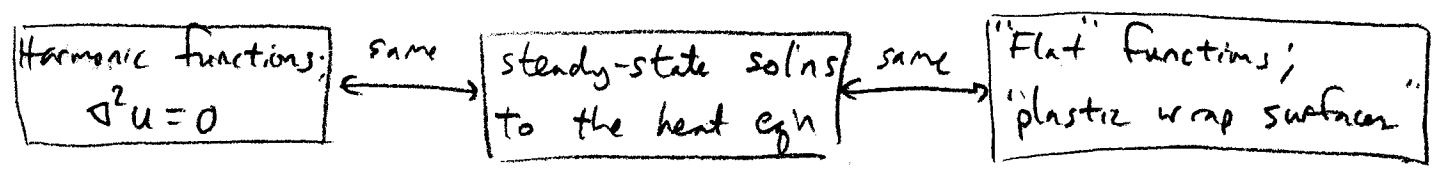 Harmonic functions;
∇²u = 0
same
steady-state sol'ns
to the heat eqn
same
"Flat" functions;
"plastic wrap surfaces"